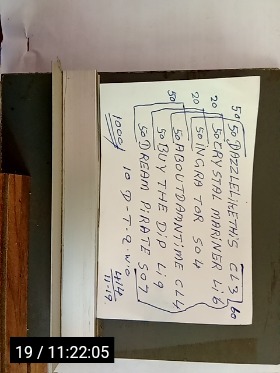 50 DAZZLELIKETHIS CL3 60
50 CRYSTAL MARINER L6
20 50 INGRA TOR SO4
50 ABOUTDAMNTIME CL4
50 BUY THE DIP L9
50 DREAM PIRATE SO7
1000/ 10 P-T-Q-W-O
19 / 11:22:05